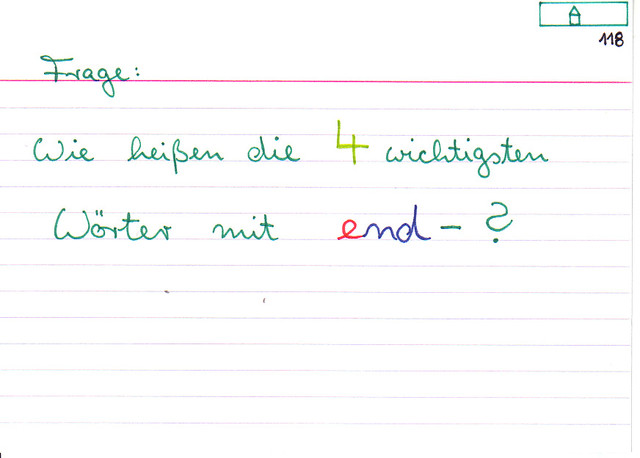 118
Frage:
Wie heißen die 4 wichtigsten
Wörter mit end-?